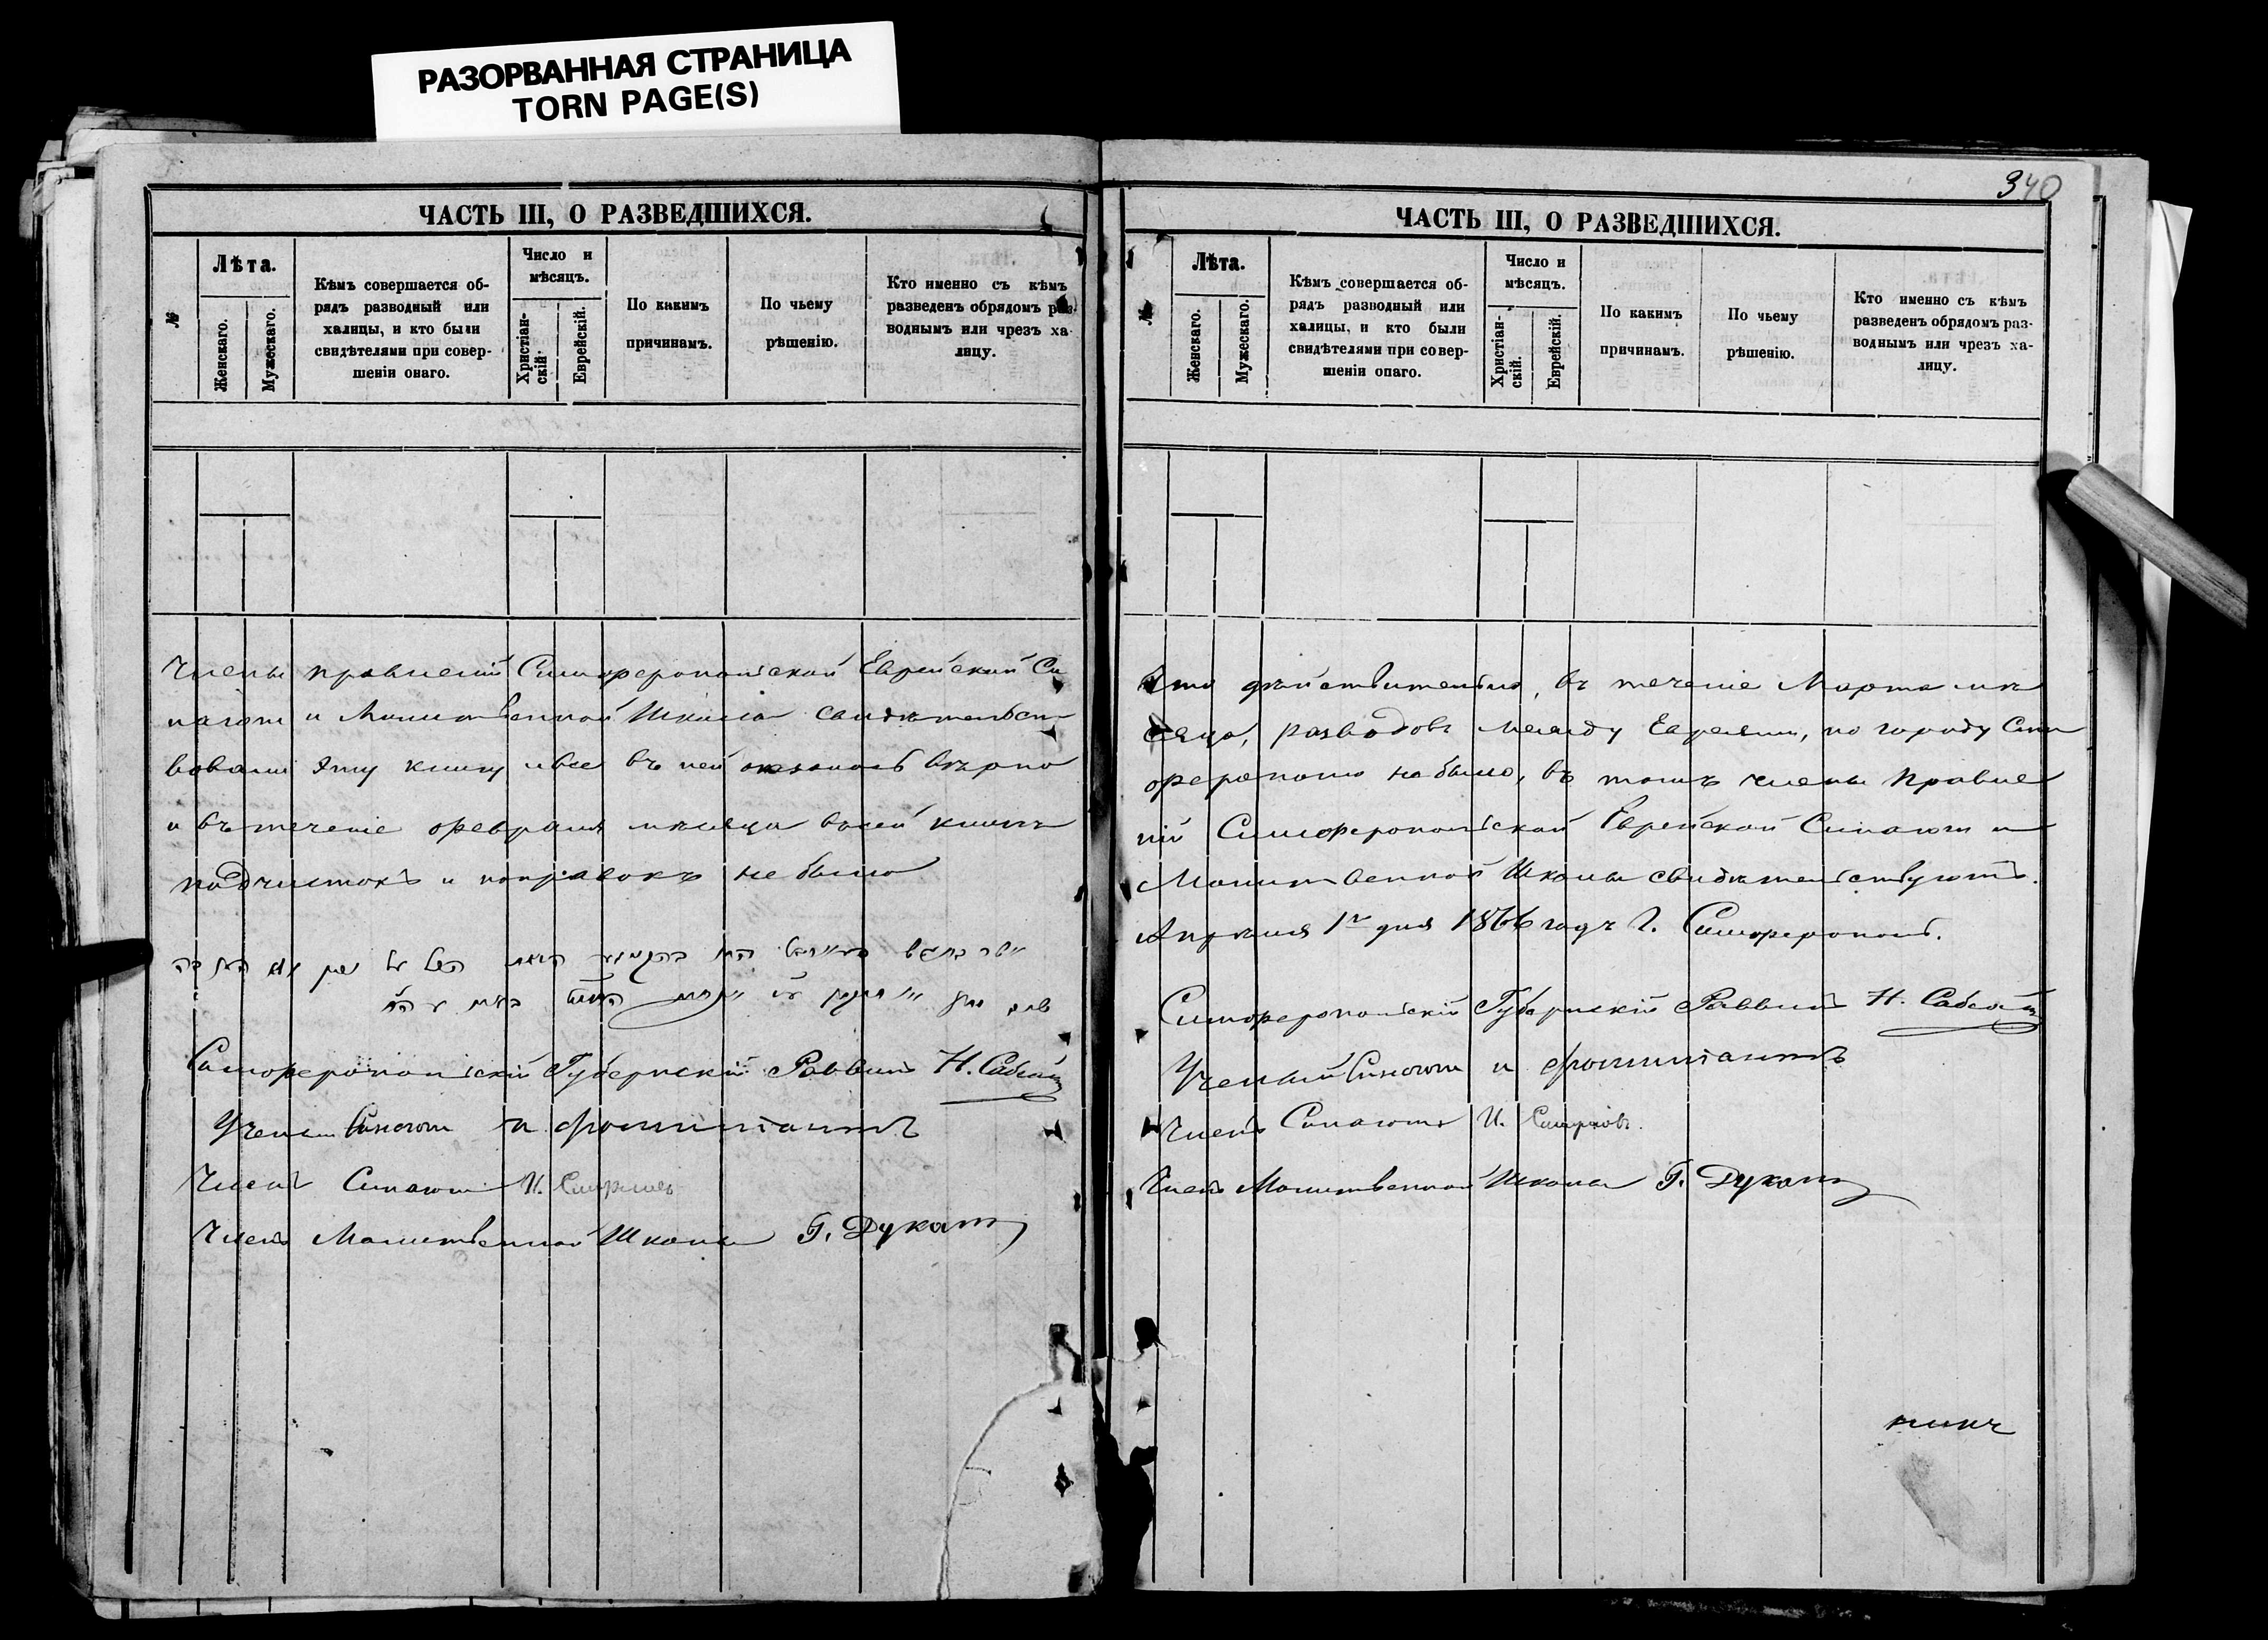 РАЗОРВАННАЯ СТРАНИЦА
TORN PAGE(S)
ЧАСТЬ III, О РАЗВЕДШИХСЯ.
№
Лѣта.
Женскаго.
Мужескаго.
Кѣмъ совершается об-
рядъ разводный или
халицы, и кто были
свидѣтелями при совер-
шеніи онаго.
Число и
мѣсяцъ.
Христіан-
скій.
Еврейскій.
По какимъ
причинамъ.
По чьему
рѣшенію.
Кто именно съ кѣмъ
разведенъ обрядомъ раз-
воднымъ или чрезъ ха-
лицу.
Члены правленій Симферопольской Еврейской Си
нагоги и Молитвенной Школы свидѣтельст
вовали эту книгу и все въ ней оказалось вѣрно
и въ теченіе февраля мѣсяца въ сей книгѣ
подчистокъ и поправокъ не было
Симферопольскій Губернскій Раввинъ Н.
Ученый Синагоги и
Членъ Синагоги И.
Членъ Молитвенной Школы Г. Дукатъ
340
ЧАСТЬ III, О РАЗВЕДШИХСЯ.
№
Лѣта.
Женскаго.
Мужескаго.
Кѣмъ совершается об-
рядъ разводный или
халицы, и кто были
свидѣтелями при совер-
шеніи онаго.
Число и
мѣсяцъ.
Христіан-
скій.
Еврейскій.
По какимъ
причинамъ.
По чьему
рѣшенію.
Кто именно съ кѣмъ
разведенъ обрядомъ раз-
воднымъ или чрезъ ха-
лицу.
Что дѣйствительно, въ теченіе Марта мѣ
сяца, разводовъ между Евреями, по городу Сим
ферополю не было, въ томъ члены Правле
ній Симферопольской Еврейской Синагоги и
Молитвенной Школы свидѣтельствуютъ.
Апрѣля 1го дня 1866 года Г. Симферополь.
Симферопольскій Губернскій Раввинъ Н.
Ученый Синагоги и
Членъ Синагоги И.
Членъ Молитвенной Школы Г. Дукатъ